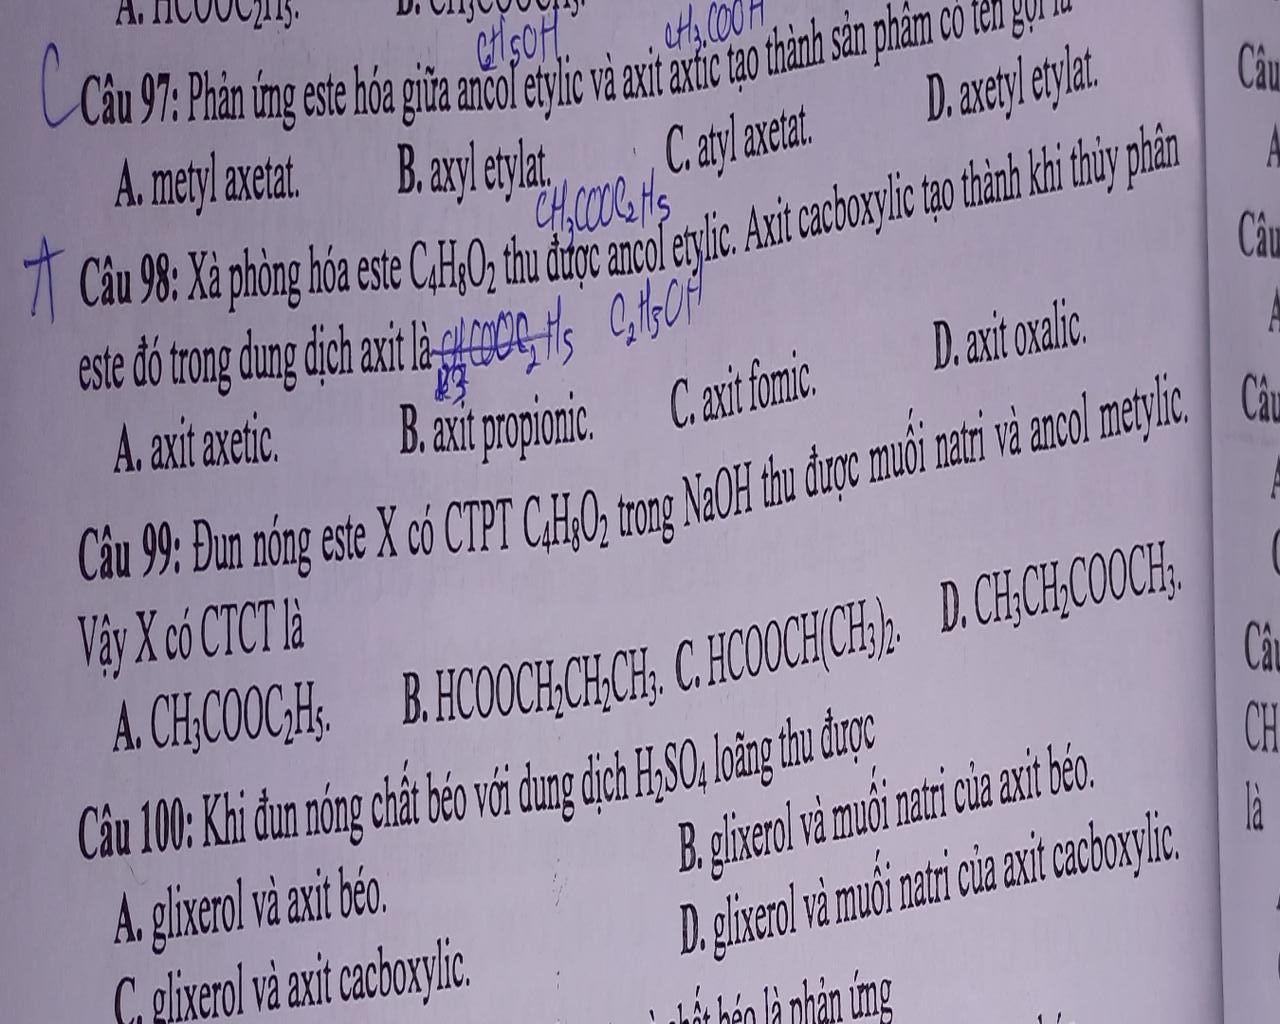 A. HCOOC2H5. B. CH3COOCH3.
C2H5OH CH3COOH
C Câu 97: Phản ứng este hóa giữa ancol etylic và axit axtic tạo thành sản phẩm có tên gọi là
A. metyl axetat. B. axyl etylat. C. atyl axetat. D. axetyl etylat.
CH3COOC2H5
A Câu 98: Xà phòng hóa este C4H8O2 thu được ancol etylic. Axit cacboxylic tạo thành khi thủy phân
este đó trong dung dịch axit là CH3COOC2H5 C2H5OH
A. axit axetic. B. axit propionic. C. axit fomic. D. axit oxalic.
Câu 99: Đun nóng este X có CTPT C4H8O2 trong NaOH thu được muối natri và ancol metylic.
Vậy X có CTCT là
A. CH3COOC2H5. B. HCOOCH2CH2CH3. C. HCOOCH(CH3)2. D. CH3CH2COOCH3.
Câu 100: Khi đun nóng chất béo với dung dịch H2SO4 loãng thu được
A. glixerol và axit béo. B. glixerol và muối natri của axit béo.
C. glixerol và axit cacboxylic. D. glixerol và muối natri của axit cacboxylic.
chất béo là phản ứng
Câu
A
Câu
A
Câu
A
Câu
CH
là